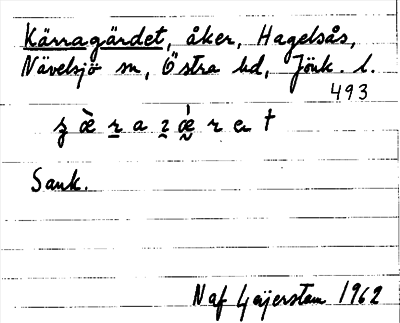 Kärragärdet, åker, Hagelsås,
Nävelsjö sn, Östra hd, Jönk. l.
493
Sank.
Naf Geijerstam 1962